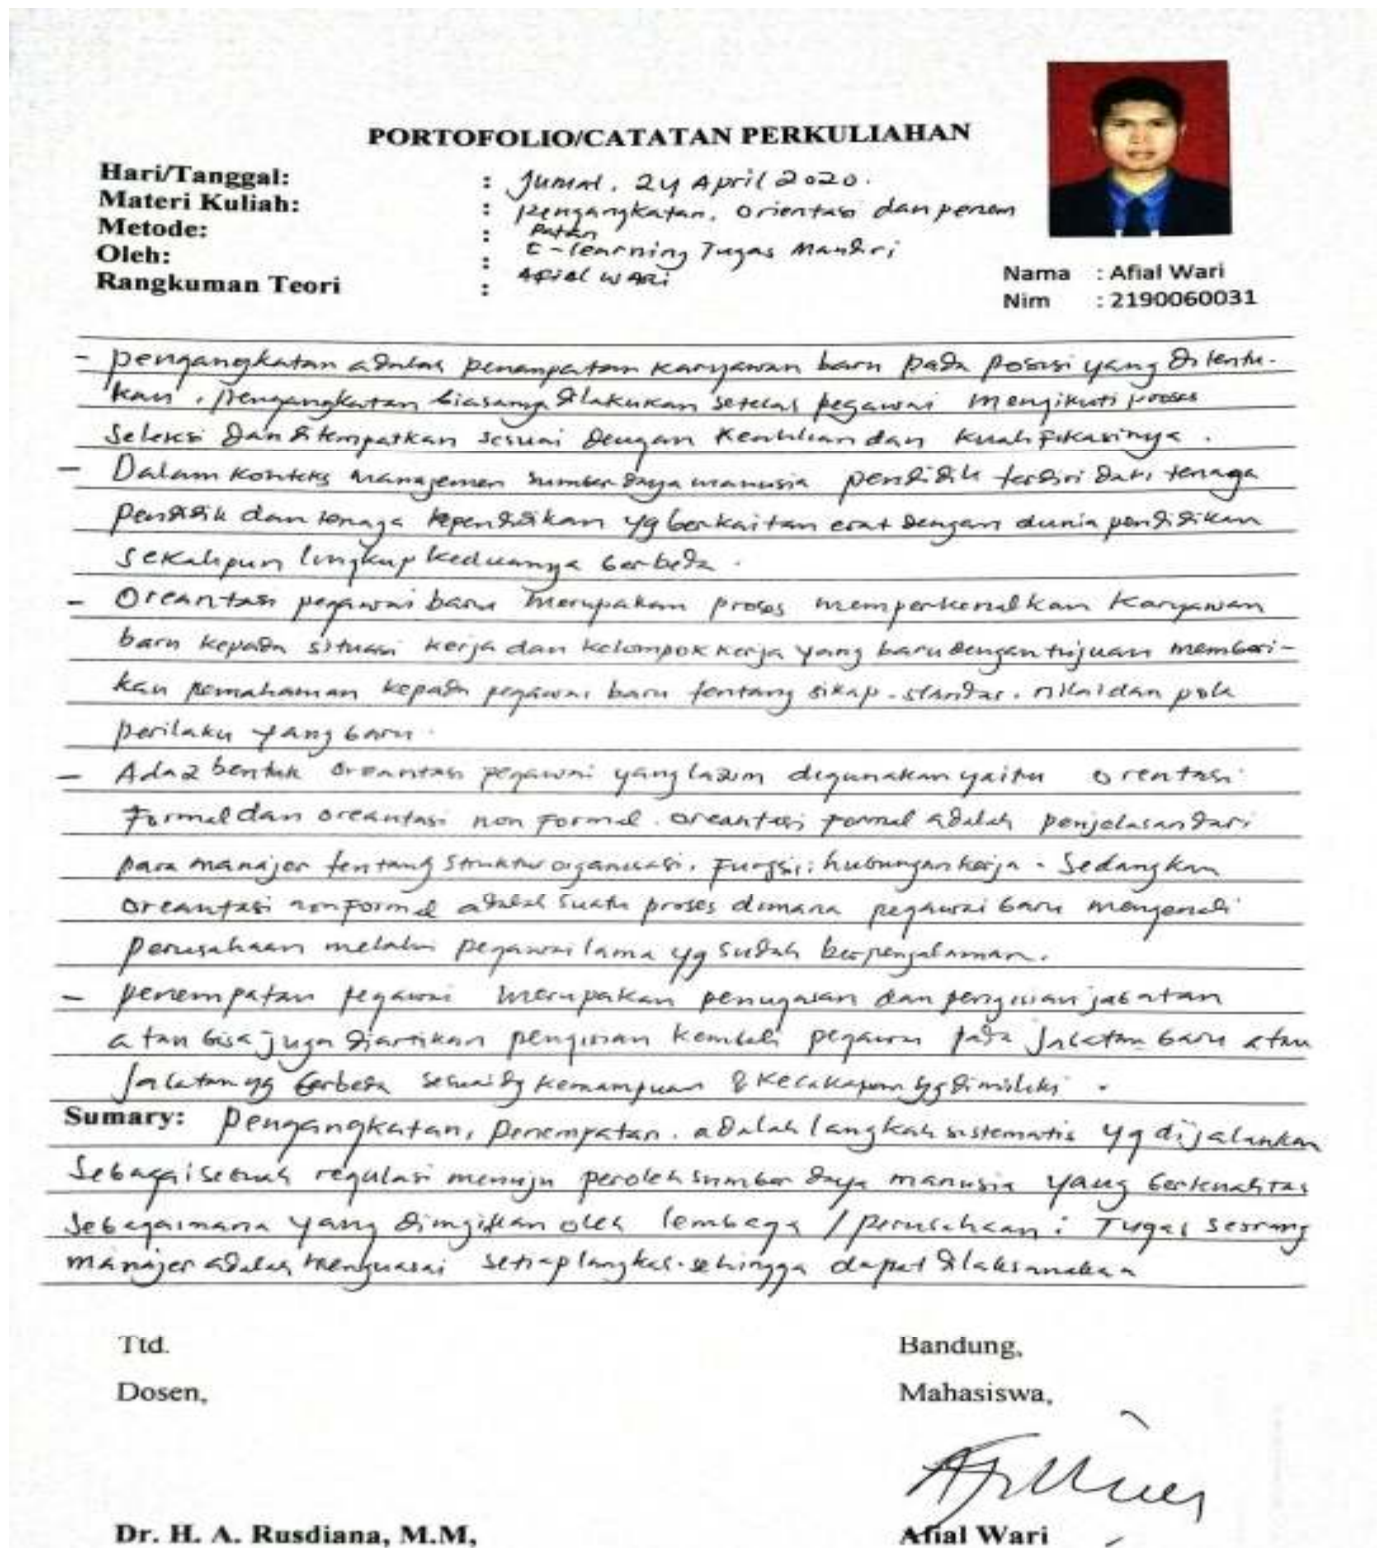 PORTOFOLIO/CATATAN PERKULIAHAN
Hari/Tanggal: : Jumat, 24 April 2020.
Materi Kuliah: : pengangkatan, Orientasi dan penem
Metode: : patan
Oleh: : E-learning Tugas Mandiri
Rangkuman Teori : Afial WARi
Nama : Afial Wari
Nim : 2190060031
- pengangkatan adalah penempatan karyawan baru pada posisi yang ditentu-
kan, pengangkatan biasanya dilakukan setelah pegawai mengikuti proses
seleksi dan ditempatkan sesuai dengan keahlian dan kualifikasinya.
- Dalam konteks manajemen sumber daya manusia pendidik terdiri dari tenaga
pendidik dan tenaga kependidikan yg berkaitan erat dengan dunia pendidikan
sekalipun lingkup keduanya berbeda.
- Oreantasi pegawai baru merupakan proses memperkenalkan karyawan
baru kepada situasi kerja dan kelompok kerja yang baru dengan tujuan memberi-
kan pemahaman kepada pegawai baru tentang sikap, standar, nilai dan pola
perilaku yang baru.
- Ada 2 bentuk oreantasi pegawai yang lazim digunakan yaitu orentasi
formal dan oreantasi non formal. oreantasi formal adalah penjelasan dari
para manajer tentang struktur organisasi, fungsi, hubungan kerja - Sedangkan
oreantasi nonformal adalah suatu proses dimana pegawai baru mengenali
perusahaan melalui pegawai lama yg sudah berpengalaman.
- penempatan pegawai merupakan penugasan dan pengisian jabatan
atau bisa juga diartikan pengisian kembali pegawai pada jabatan baru atau
jabatan yg berbeda sesuai dg kemampuan & kecakapan yg dimiliki.
Sumary: pengangkatan, penempatan. adalah langkah sistematis yg dijalankan
sebagai sebuah regulasi menuju peroleh sumber daya manusia yang berkualitas
sebagaimana yang diinginkan oleh lembaga / perusahaan: Tugas seorang
manajer adalah menguasai setiap langkah. sehingga dapat dilaksanakan
Ttd. Bandung,
Dosen, Mahasiswa,
Dr. H. A. Rusdiana, M.M, Afial Wari